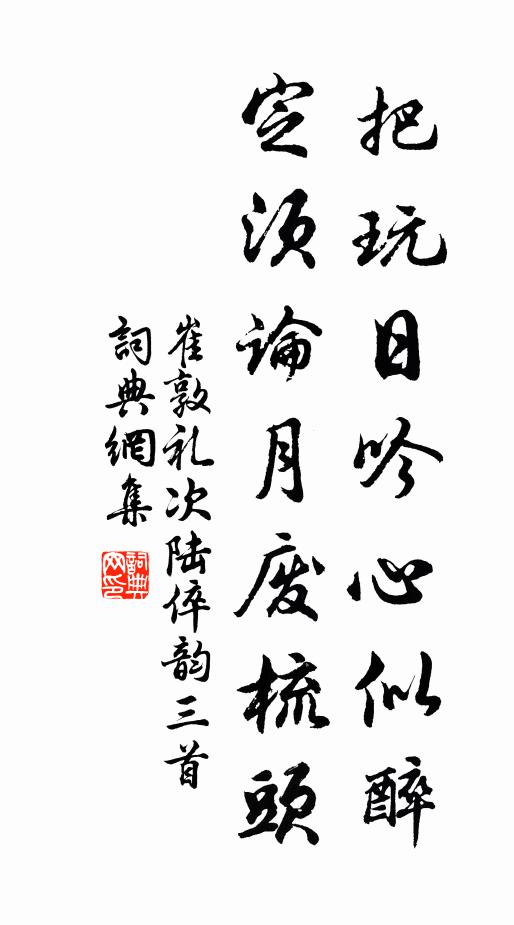 把玩日吟心似醉
定須論月废梳頭
崔敦礼次陆倅韵三首
詞典網集
詞典网印